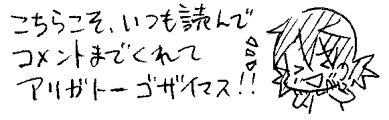 こちらこそ、いつも読んで
コメントまでくれて
アリガトーゴザイマス!!